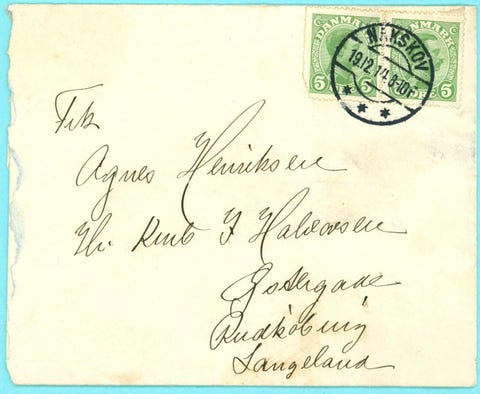 DANMARK DANMARK
5 5 5
NAKSKOV
19.12.14. 8-10F
Frk
Agnes Henriksen
Hr. Kmb I Halvorsen
Østergade
Rudkøbing
Langeland